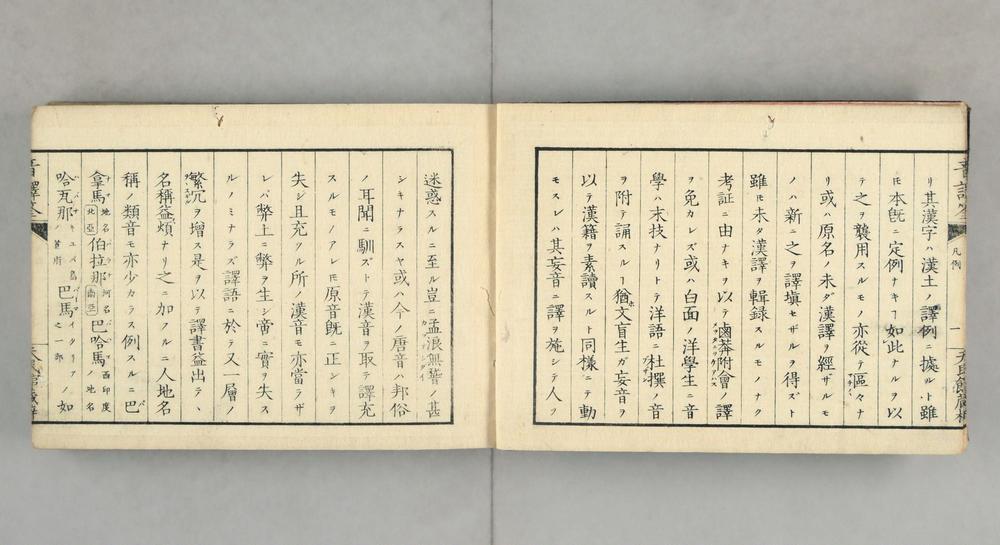 リ其漢字ハ漢土ノ譯例ニ據ルト雖
𪜈本旣ニ定例ナキヿ如此ナルヲ以
テ之ヲ襲用スルモノ亦從テ區々ナ
リ或ハ原名ノ未ダ漢譯ヲ經ザルモ
ノハ新ニ之ヲ譯塡セザルヲ得ズト
雖𪜈未タ漢譯ヲ輯録スルモノナク
考証ニ由ナキヲ以テ鹵莽附會ノ譯
ヲ免カレズ或ハ白面ノ洋學生ニ音
學ハ末技ナリトテ洋語ニ杜撰ノ音
ヲ附テ誦スルヿ猶文盲生ガ妄音ヲ
以テ漢籍ヲ素讀スルト同樣ニテ動
モスレハ其妄音ニ譯ヲ施シテ人ヲ
凡例
一
迷惑スルニ至ル豈ニ孟浪無稽ノ甚
シキナラスヤ或ハ今ノ唐音ハ邦俗
ノ耳聞ニ馴ズトテ漢音ヲ取テ譯充
スルモノアレ𪜈原音旣ニ正シキヲ
失シ且充ツル所ノ漢音モ亦當ラザ
レバ弊上ニ弊ヲ生シ啻ニ實ヲ失ス
ルノミナラズ譯語ニ於テ又一層ノ
繁冗ヲ增ス是ヲ以テ譯書益出テヽ
名稱益煩ナリ之ニ加フルニ人地名
稱ノ類音モ亦少カラス例スルニ巴
拿馬地名北亞伯拉那河名南亞巴哈馬西印度ノ地名
哈瓦那キュバ島ノ首府巴馬イタリアノ一郡ノ如